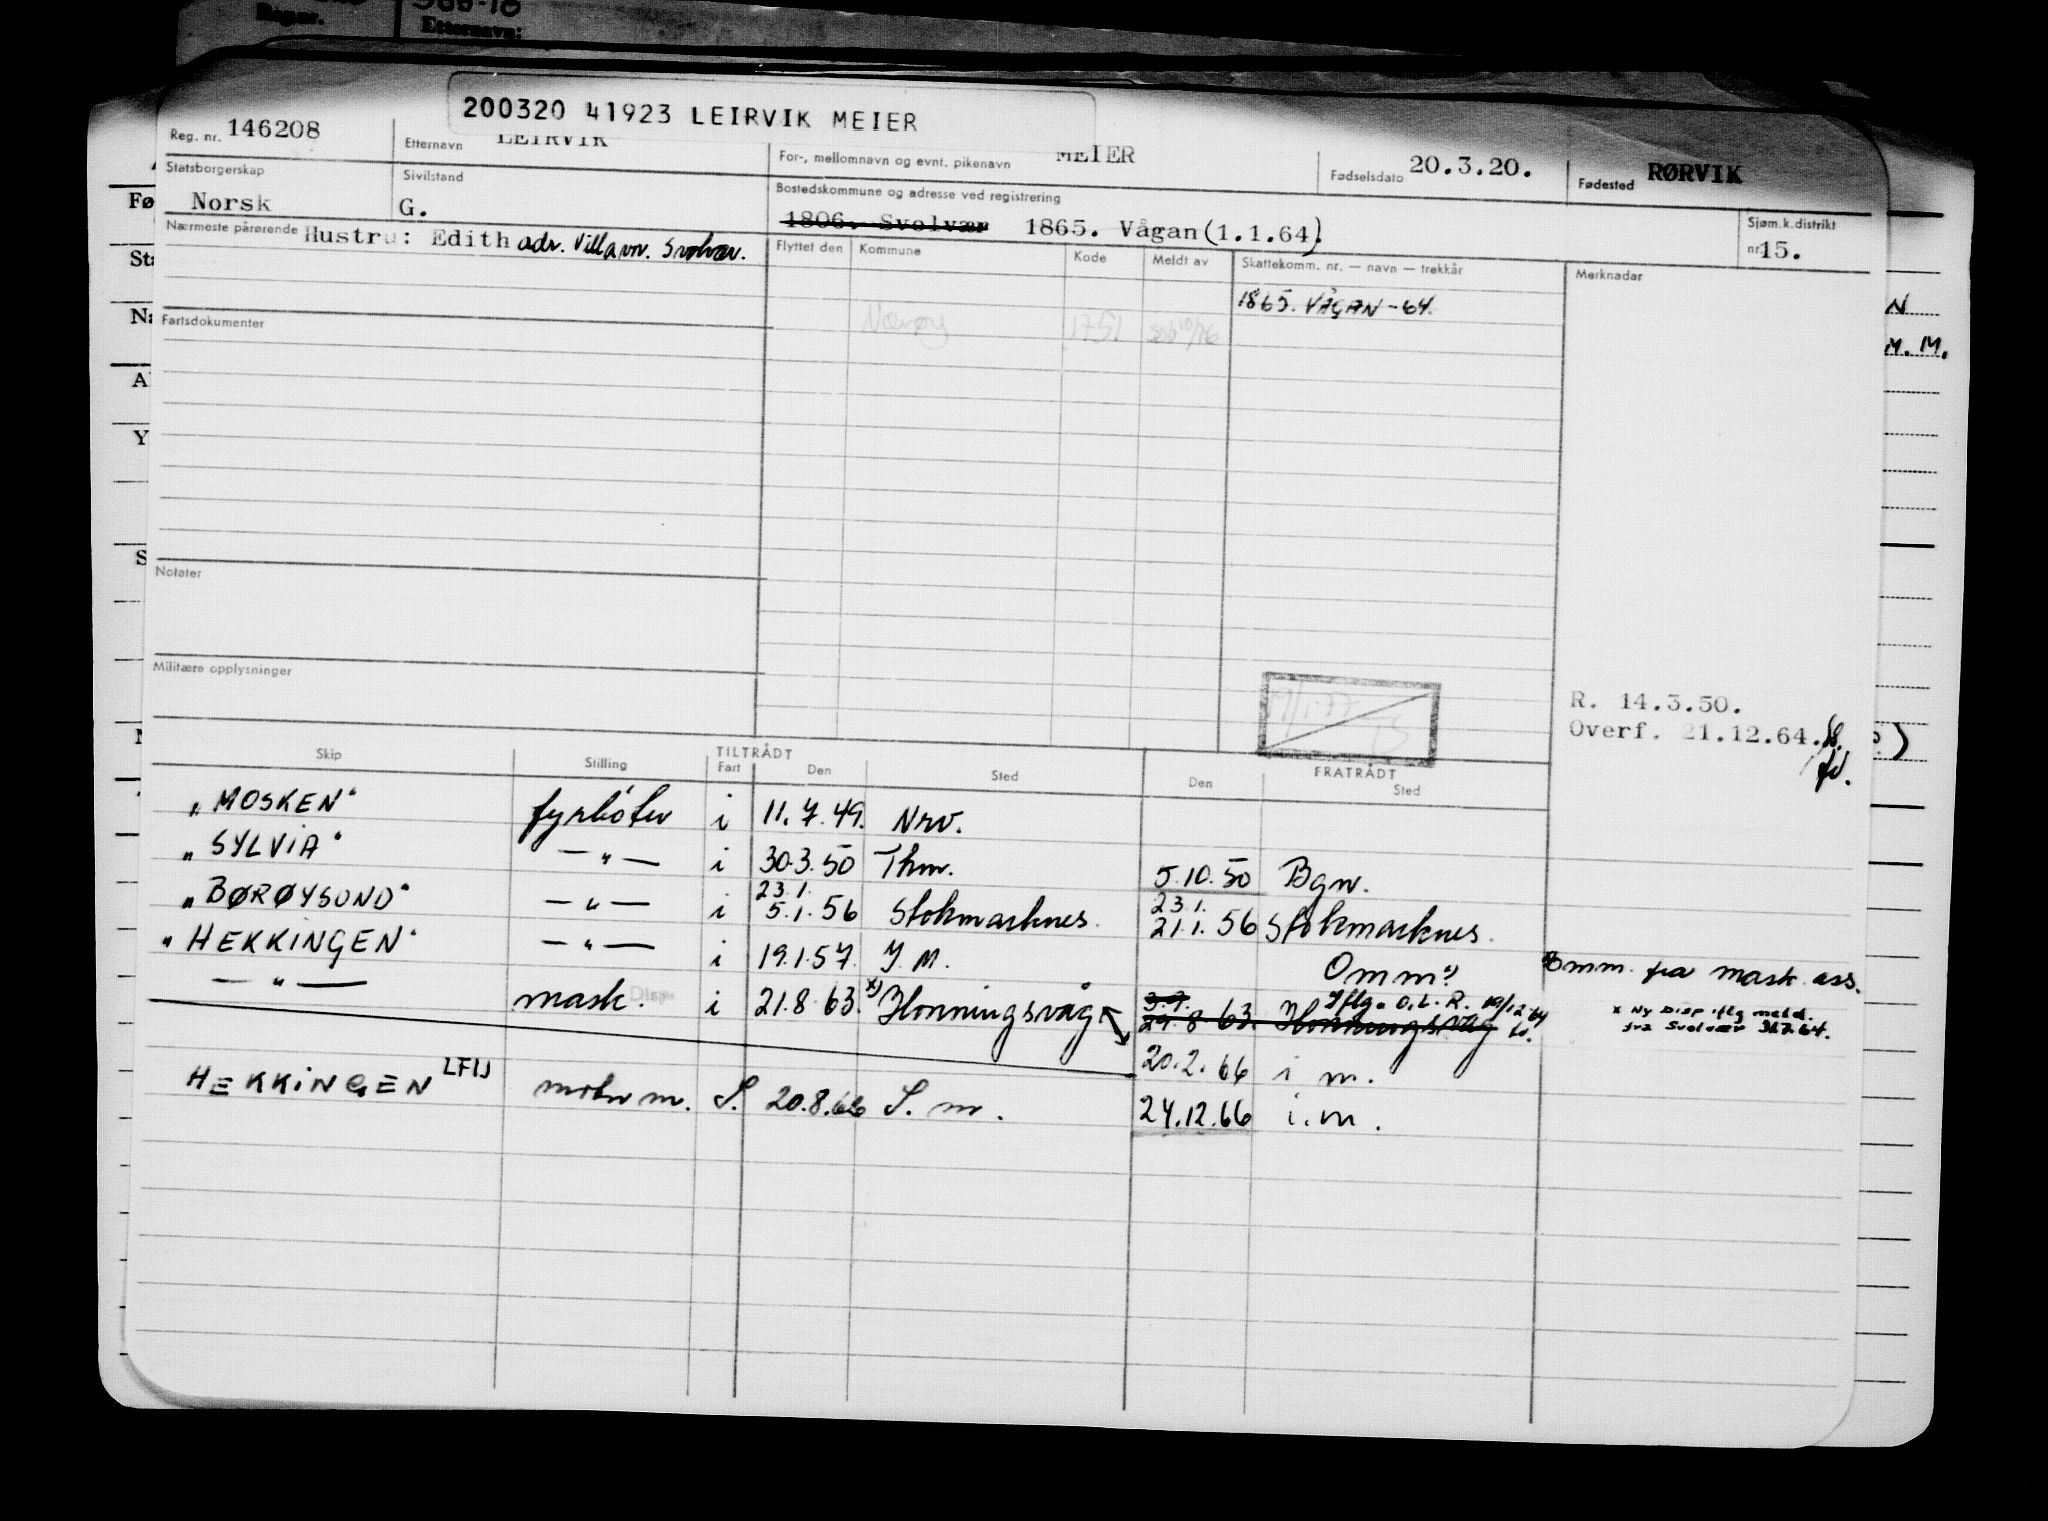 Reg.nr.
Etternavn:
200320 41923 LEIRVIK MEIER
Reg. nr. 146208
Etternavn LEIRVIK
For-, mellomnavn og evnt. pikenavn MEIER
Fødselsdato 20.3.20.
Fødested RØRVIK
Statsborgerskap Norsk
Sivilstand G.
Bostedskommune og adresse ved registrering
1806. Svolvær 1865. Vågan(1.1.64).
Sjøm.k.distrikt nr. 15.
Nærmeste pårørende Hustru: Edith adr. Villavn. Svolvær.
Flyttet den Kommune Kode Meldt av Skattekomm. nr. — navn — trekkår Merknader
1865. VÅGAN-64.
Nærøy 1751
Fartsdokumenter
Notater
Militære opplysninger
19/1-77
R. 14.3.50.
Overf. 21.12.64.
TILTRÅDT FRATRÅDT
Skip Stilling Fart Den Sted Den Sted
"MOSKEN" fyrbøter i 11.7.49. Nrv.
"SYLVIA" — " — i 30.3.50 Thm. 5.10.50 Bgn.
23.1. 23.1.
"BØRØYSUND" — " — i 5.1.56 Stokmarknes. 21.1.56 Stokmarknes.
"HEKKINGEN" — " — i 19.1.57. I.M. Omm. Omm. fra mask. ass.
— " — mask. Disp. i 21.8.63. x) Honningsvåg 3.9. 29.8.63. Honningsvåg
Iflg. O.L.R. 19/12 64
x Ny Disp iflg meld.
fra Svolvær 31.7.64.
20.2.66 i m.
HEKKINGEN LFIJ motorm. S. 20.8.66 S. m. 24.12.66 i.m.